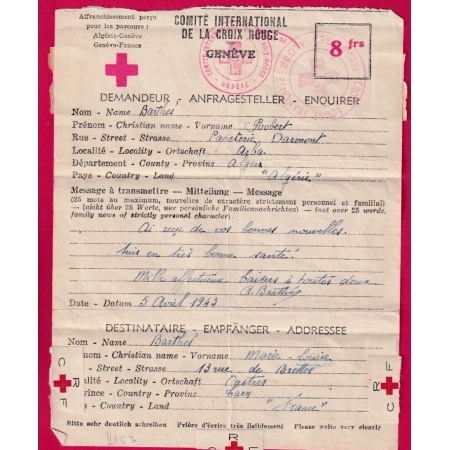 Affranchissement perçu
pour les parcours :
Algérie-Genève
Genève-France
COMITÉ INTERNATIONAL
DE LA CROIX ROUGE
GENÈVE
8 frs
DEMANDEUR - ANFRAGESTELLER - ENQUIRER
Nom - Name Barthes
Prénom - Christian name - Vorname Robert
Rue - Street - Strasse Papeterie Darmont
Localité - Locality - Ortschaft Arba
Département - County - Provinz Alger
Pays - Country - Land "Algérie"
Message à transmettre — Mitteilung — Message
(25 mots au maximum, nouvelles de caractère strictement personnel et familial)
— (nicht über 25 Worte, nur persönliche Familiennachrichten) — (not over 25 words,
family news of strictly personal character).
Ai reçu de vos bonnes nouvelles.
Suis en très bonne santé.
Mille affectueux baisers à toutes deux.
R. Barthes
Date - Datum 5 Avril 1943
DESTINATAIRE - EMPFÄNGER - ADDRESSEE
Nom - Name Barthes
Prénom - Christian name - Vorname Marie-Louise
Street - Strasse 13 rue de
alité - Locality - Ortschaft Castres
vince - County - Provinz Tarn
s - Country - Land "France"
Bitte sehr deutlich schreiben Prière d'écrire très lisiblement Please write very clearly
C R F
C R F
C R